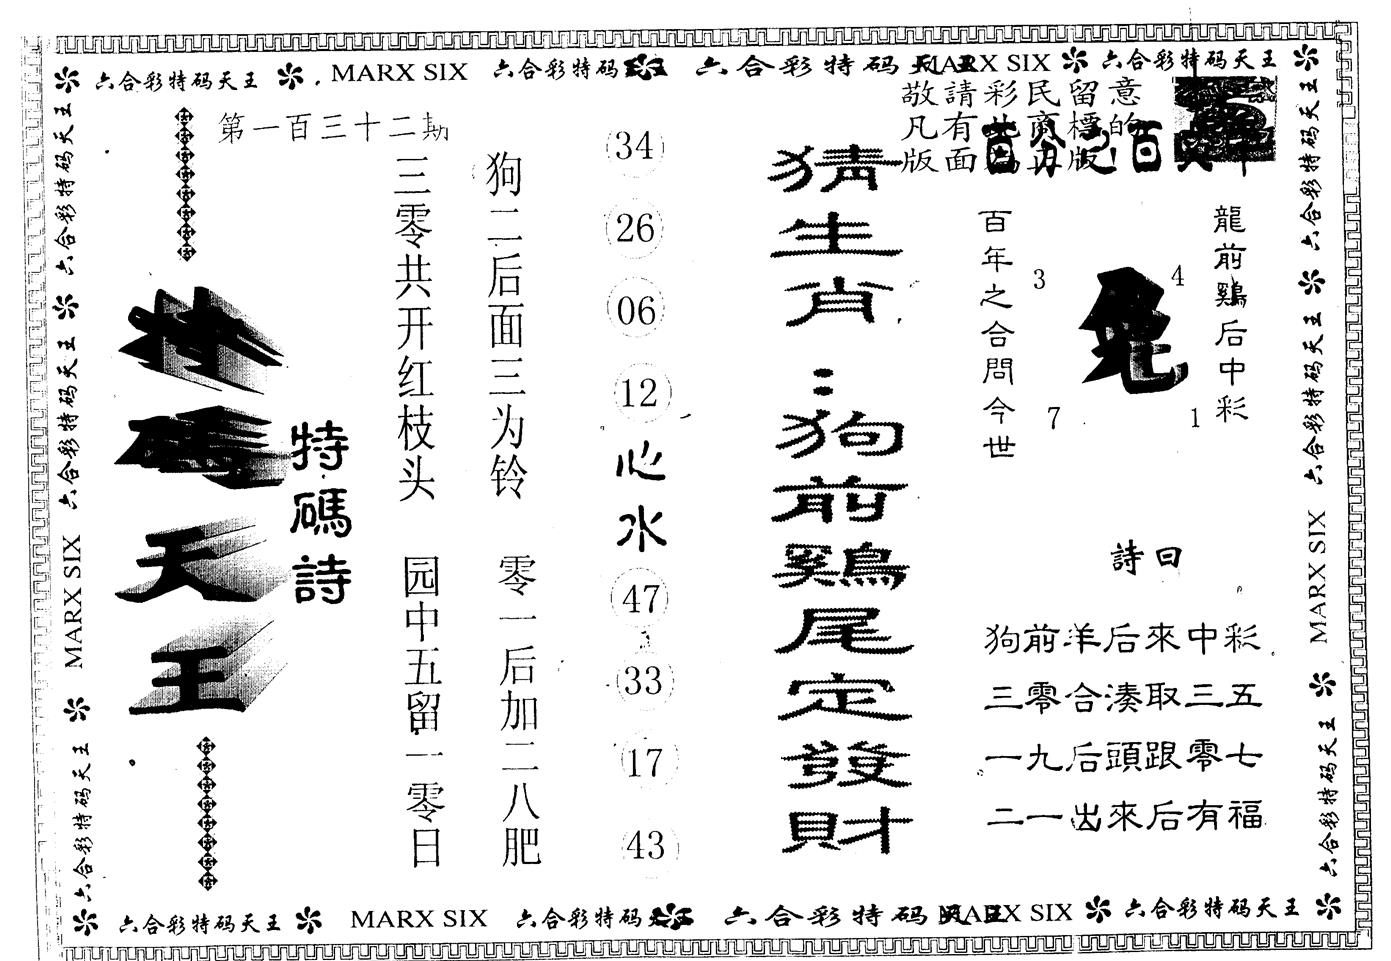 六合彩特码天王
MARX SIX
六合彩特码
六合彩特码天王
MARX SIX
六合彩特码天王
敬請彩民留意
凡有
商標的
版面
版!
百分之百
第一百三十二期
特碼天王
特碼詩
三零共开红枝头
园中五留一零日
狗二后面三为铃
零一后加二八肥
34
26
06
12
心水
47
33
17
43
猜生肖:狗前鷄尾定發財
百年之合問今世
3
4
兔
7
1
龍前鷄后中彩
詩曰
狗前羊后來中彩
三零合湊取三五
一九后頭跟零七
二一出來后有福
六合彩特码天王
六合彩特码天王
MARX SIX
六合彩特码天王
六合彩特码天王
六合彩特码天王
MARX SIX
六合彩特码天王
六合彩特码天王
MARX SIX
六合彩特码
六合彩特码天王
MARX SIX
六合彩特码天王